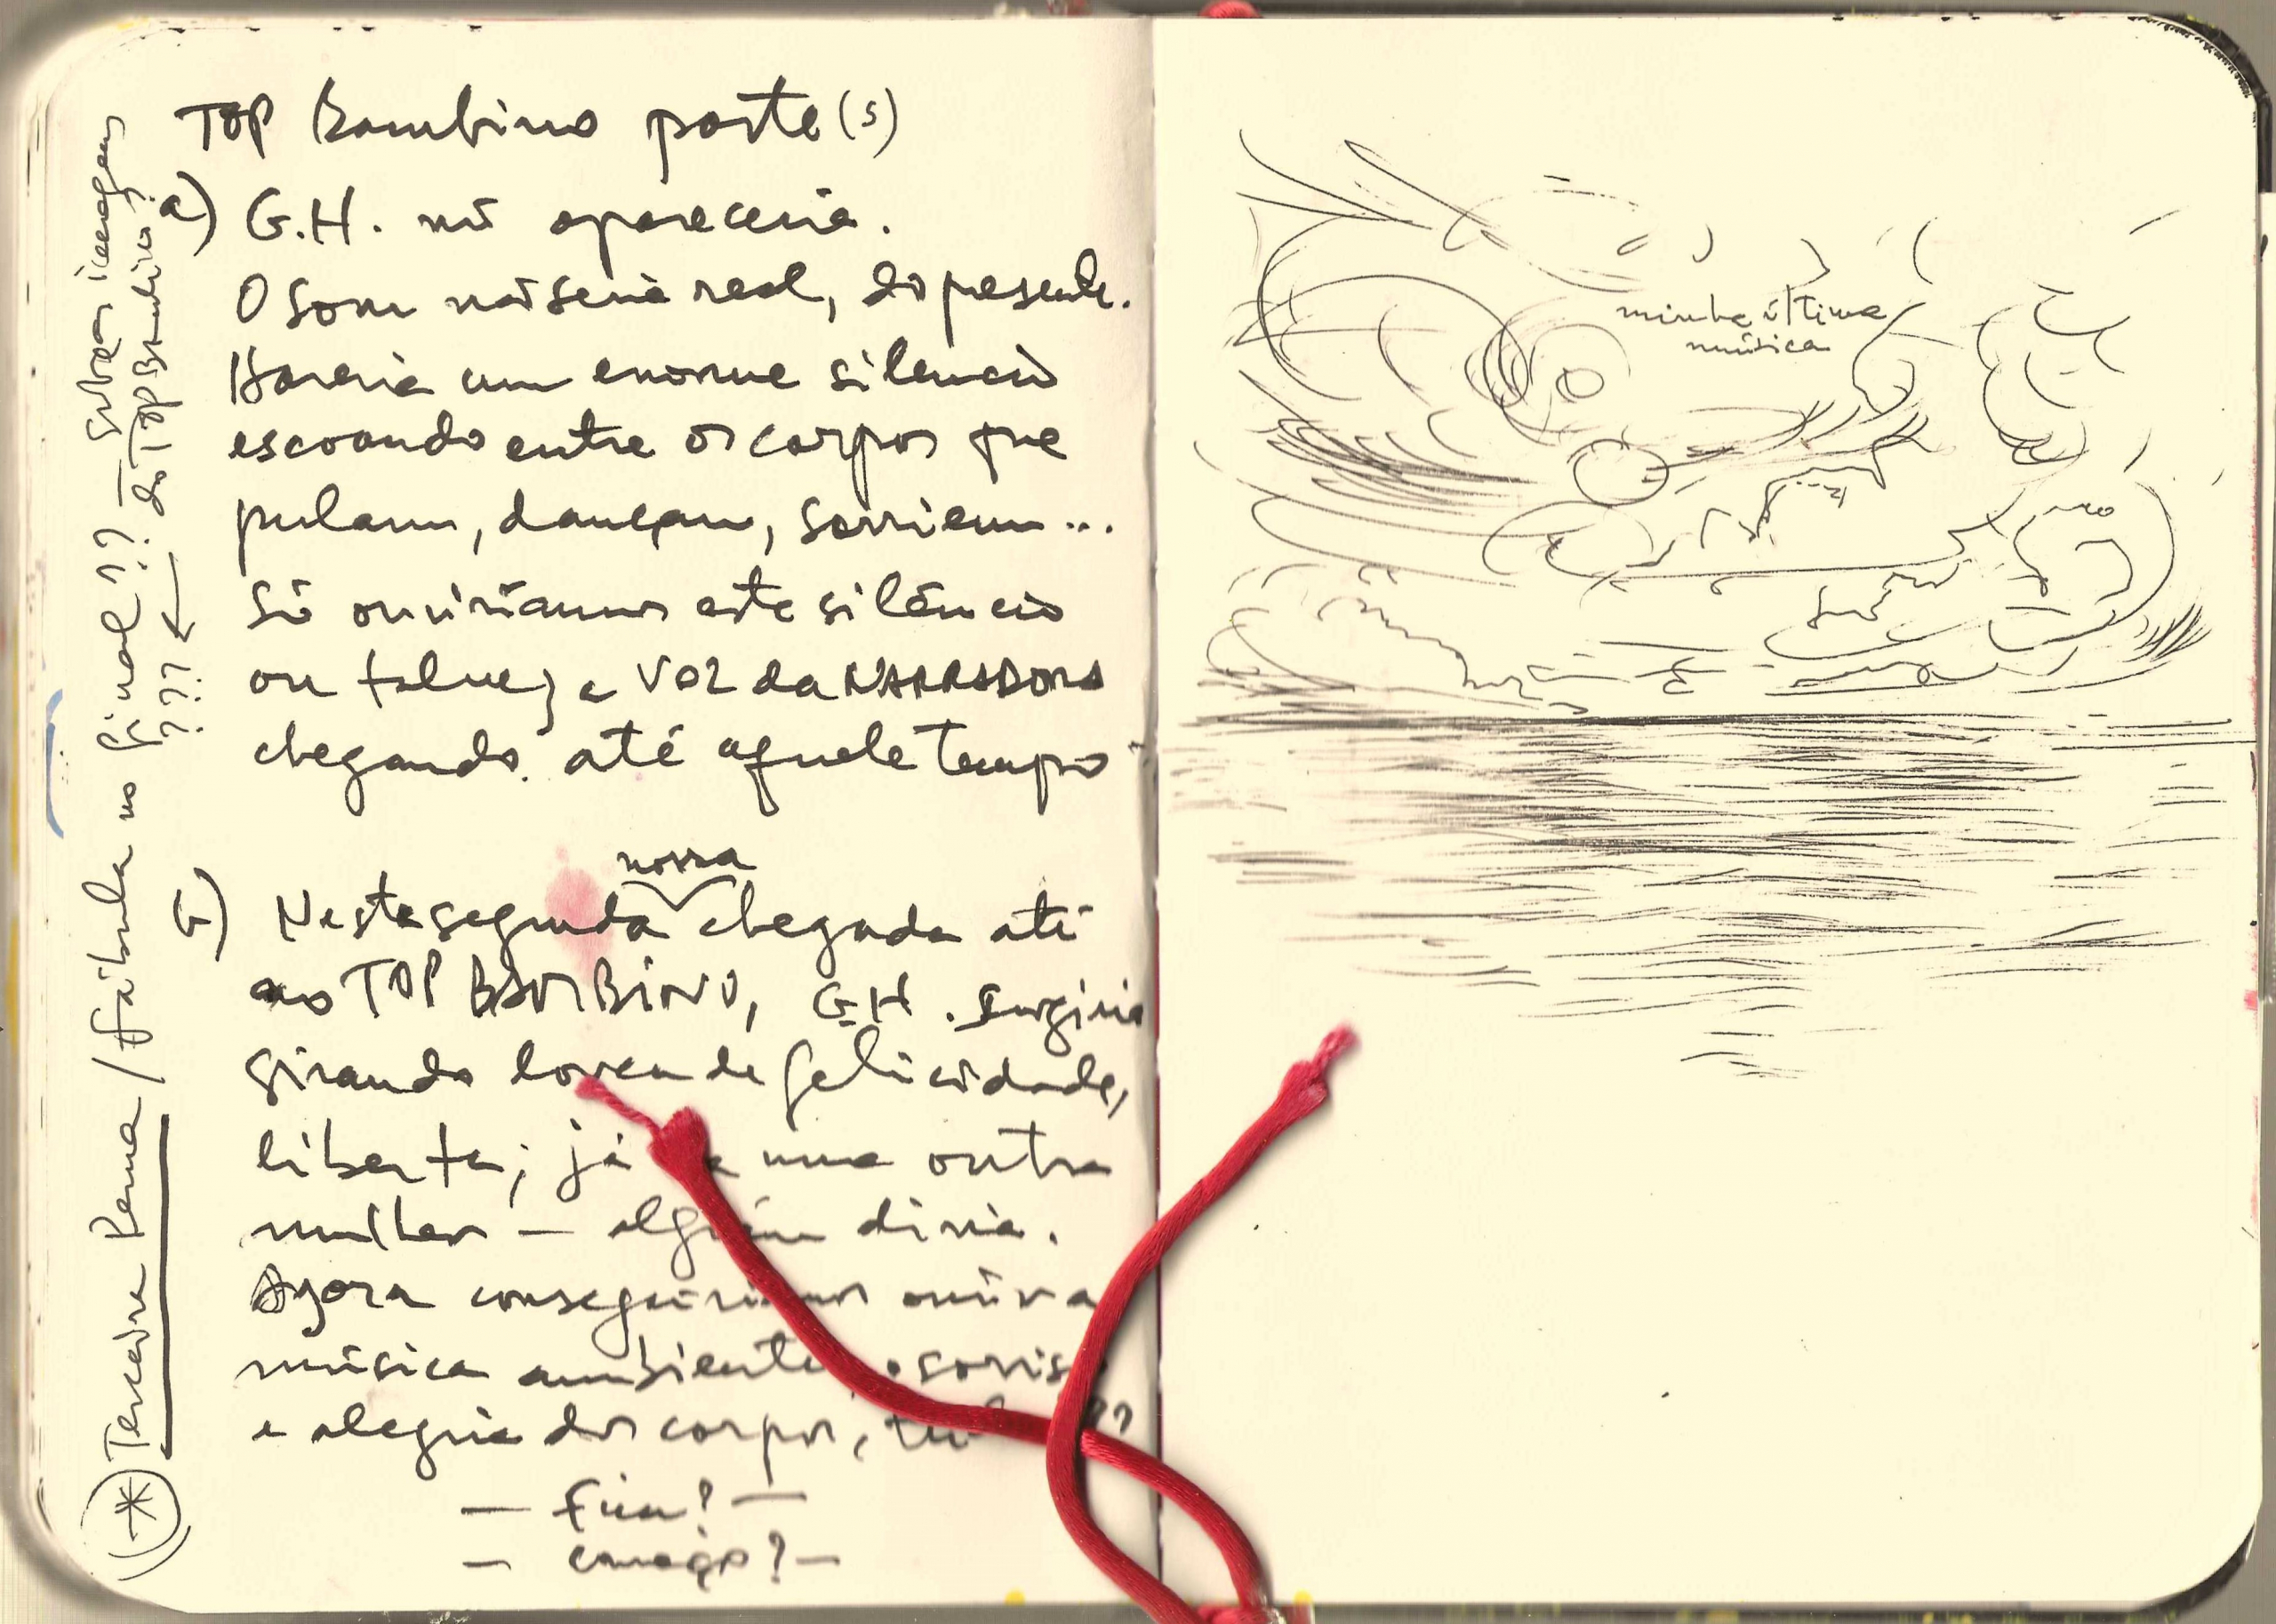 TOP Bambino parte(s)
a) G.H. não apareceria.
O som não seria real, do presente.
Haveria um enorme silêncio
escoando entre os corpos que
pulam, dançam, sorriem...
Só ouviríamos este silêncio
ou talvez a VOZ da NARRADORA
chegando até aquele tempo
nossa
Nesta segunda chegada até
ao TOP BAMBINO, G.H. surgiria
girando louca de felicidade,
liberta; já uma outra
mulher — alguém diria.
Agora conseguiríamos ouvir a
música ambiente, o sorriso
a alegria dos corpos,
— Fim? —
— começo? —
(*) Terceira Perna / fábula no final?? — sobre as imagens
do TOP Bambino?
???
minha última
música